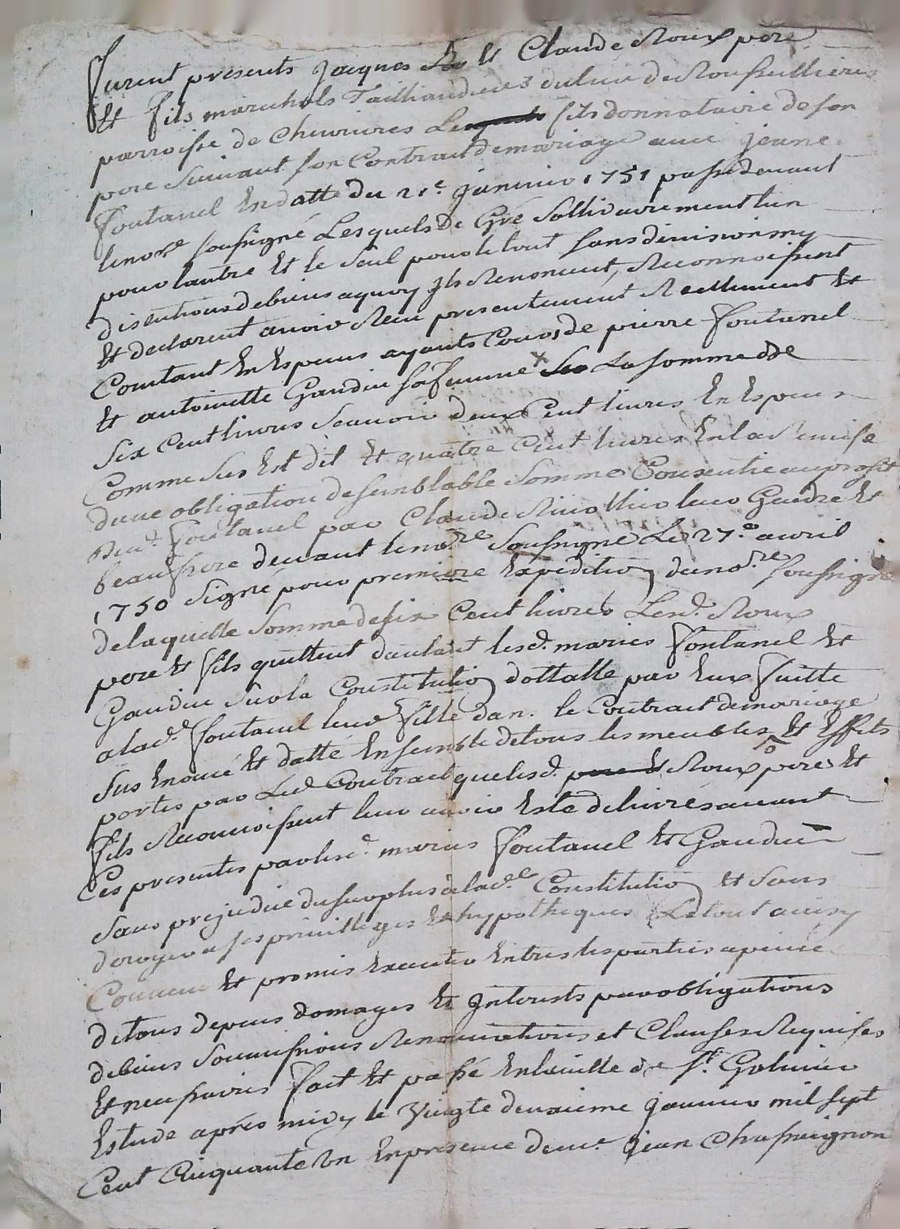 furent presents jacques Et Claude Roux pere
Et fils marechals Tailliandiers du lieu de
parroisse de Chevrieres Le fils donnotaire de son
pere suivant son Contract de mariage avec jeane
fontanel En datte du 21e janvier 1751 passé devant
le nore soussigné Lesquels de Gré sollidairement lun
pour lautre Et le seul pour le tout sans division ny
discutions de biens a quoy ils Renoncent, Reconnoissent
Et declarent avoir Receu presentement Reellement Et
Comtant En Especes ayants Cours de pierre fontanel
Et antoinette Gaudin sa femme x La somme de
six Cent livres scavoir deux Cent livres En Especes
Comme sus Est dit Et quatre Cent livres En la Remise
dune obligation de semblable somme Consentie au profit
dud. fontanel par Claude leur Gendre Et
beaufrere devant le nore soussigné Le 27e avril
1750 signé pour premiere Expedition du nore soussigné
de laquelle somme de six Cent livres Lesd. Roux
pere Et fils quittent dautant lesd. mariés fontanel Et
Gaudin sur la Constitution dottalle par Eux faitte
a lad. fontanel leur fille dan. le Contract de mariage
sus Enoncé Et datté Ensemble de tous les meubles Et Effets
portés par Led. Contract que lesd. Roux pere Et
fils Reconnoissent leur avoir Esté delivrés avant
Ces presentes par lesd. mariés fontanel Et Gaudin
sans prejudice du surplus de lad.e Constitution Et sans
deroger a ses privilleges Et hypotheques Le tout ainsy
Convenu Et promis Executer Entre les parties a peine
de tous depens domages Et Interests par obligations
de biens soumissions Renonciations et Clauses Requises
Et necessaires fait Et passé En la ville de St. Galmier
Estude aprés midy le Vingte deuxieme janvier mil sept
Cent Cinquante Un En presence de me. jean Chassaignon